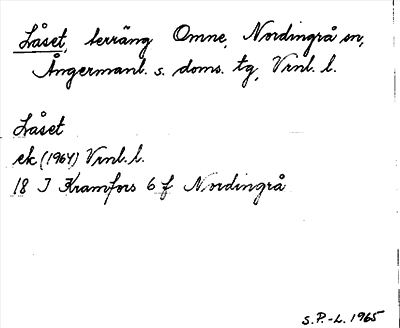 Låset, terräng Omne, Nordingrå sn,
Ångermanl. s. doms. tg, Vrnl. l.
Låset
ek (1964) Vrnl. l.
18 I Kramfors 6 f Nordingrå
S.P.-L. 1965